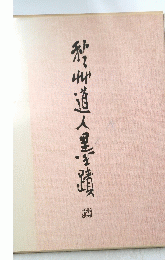 秋艸道人墨蹟